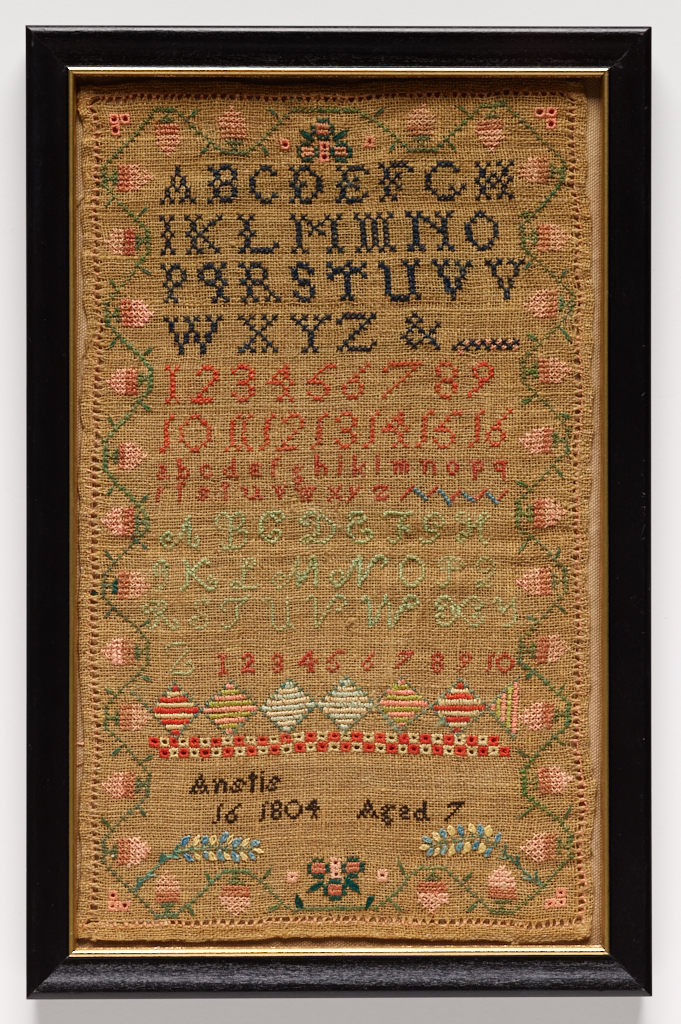 A B C D E F G H
I K L M M N O
P q R S T U V V
W X Y Z &
1 2 3 4 5 6 7 8 9
10 11 12 13 14 15 16
a b c d e f g h i k l m n o p q
r s t u v w x y z
A B C D E F G H
I K L M N O P Q
R S T U V W X Y
Z 1 2 3 4 5 6 7 8 9 10
Anstie
16 1804 Aged 7